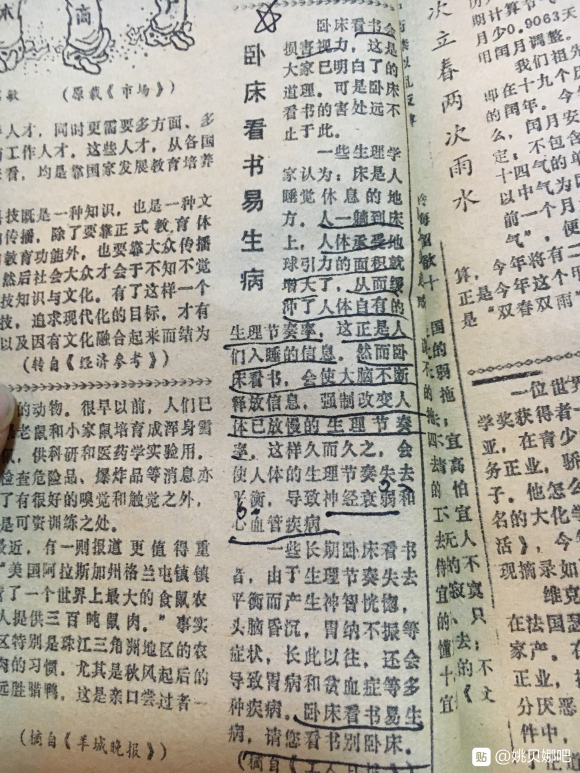 术
高
(原载《市场》)
人才，同时更需要多方面、多
工作人才。这些人才，从各国
来看，均是靠国家发展教育培养
技既是一种知识，也是一种文
传播，除了要靠正式教育体
教育功能外，也要靠大众传播
然后社会大众才会于不知不觉
技知识与文化。有了这样一个
技，追求现代化的目标，才有
以及因有文化融合起来而结为
(转自《经济参考》)
的动物。很早以前，人们已
老鼠和小家鼠培育成浑身雪
，供科研和医药学实验用。
检查危险品、爆炸品等消息亦
了有很好的嗅觉和触觉之外，
是可资训练之处。
最近，有一则报道更值得重
"美国阿拉斯加州格兰屯镇镇
了一个世界上最大的食鼠农
人提供三百吨鼠肉。"事实
区特别是珠江三角洲地区的农
肉的习惯，尤其是秋风起后的
远胜腊鸭，这是亲口尝过者一
(摘自《羊城晚报》)
卧床看书易生病
卧床看书会
损害视力，这是
大家已明白了的
道理。可是卧床
看书的害处远不
止于此。
一些生理学
家认为：床是人
睡觉休息的地
方，人一躺到床
上，人体承受地
球引力的面积就
增大了，从而缓
冲了人体自有的
生理节奏率，这正是人
们入睡的信息。然而卧
床看书，会使大脑不断
释放信息，强制改变人
体已放慢的生理节奏
率，这样久而久之，会
使人体的生理节奏失去
平衡，导致神经衰弱和
心血管疾病。
一些长期卧床看书
者，由于生理节奏失去
平衡而产生神智恍惚，
头脑昏沉，胃纳不振等
症状，长此以往，还会
导致胃病和贫血症等多
种疾病。卧床看书易生
病，请您看书别卧床。
次立春两次雨水
期计算节气
月少0.9063天
用闰月调整。
我们祖先
即在十九个
的闰年。今
么，闰月安
定；不包含
十四气的单
以中气为
前一个月
气"，便
算，今年将有二
是今年这个甲
"双春双雨"
一位世界
学奖获得者
亚，在青少
务正业，骄
子。他怎么
名的大化学
活》，今
现摘录如
维克
在法国瑟
家产。在
正业，
分厌恶
件中，
贴 @姚贝娜吧